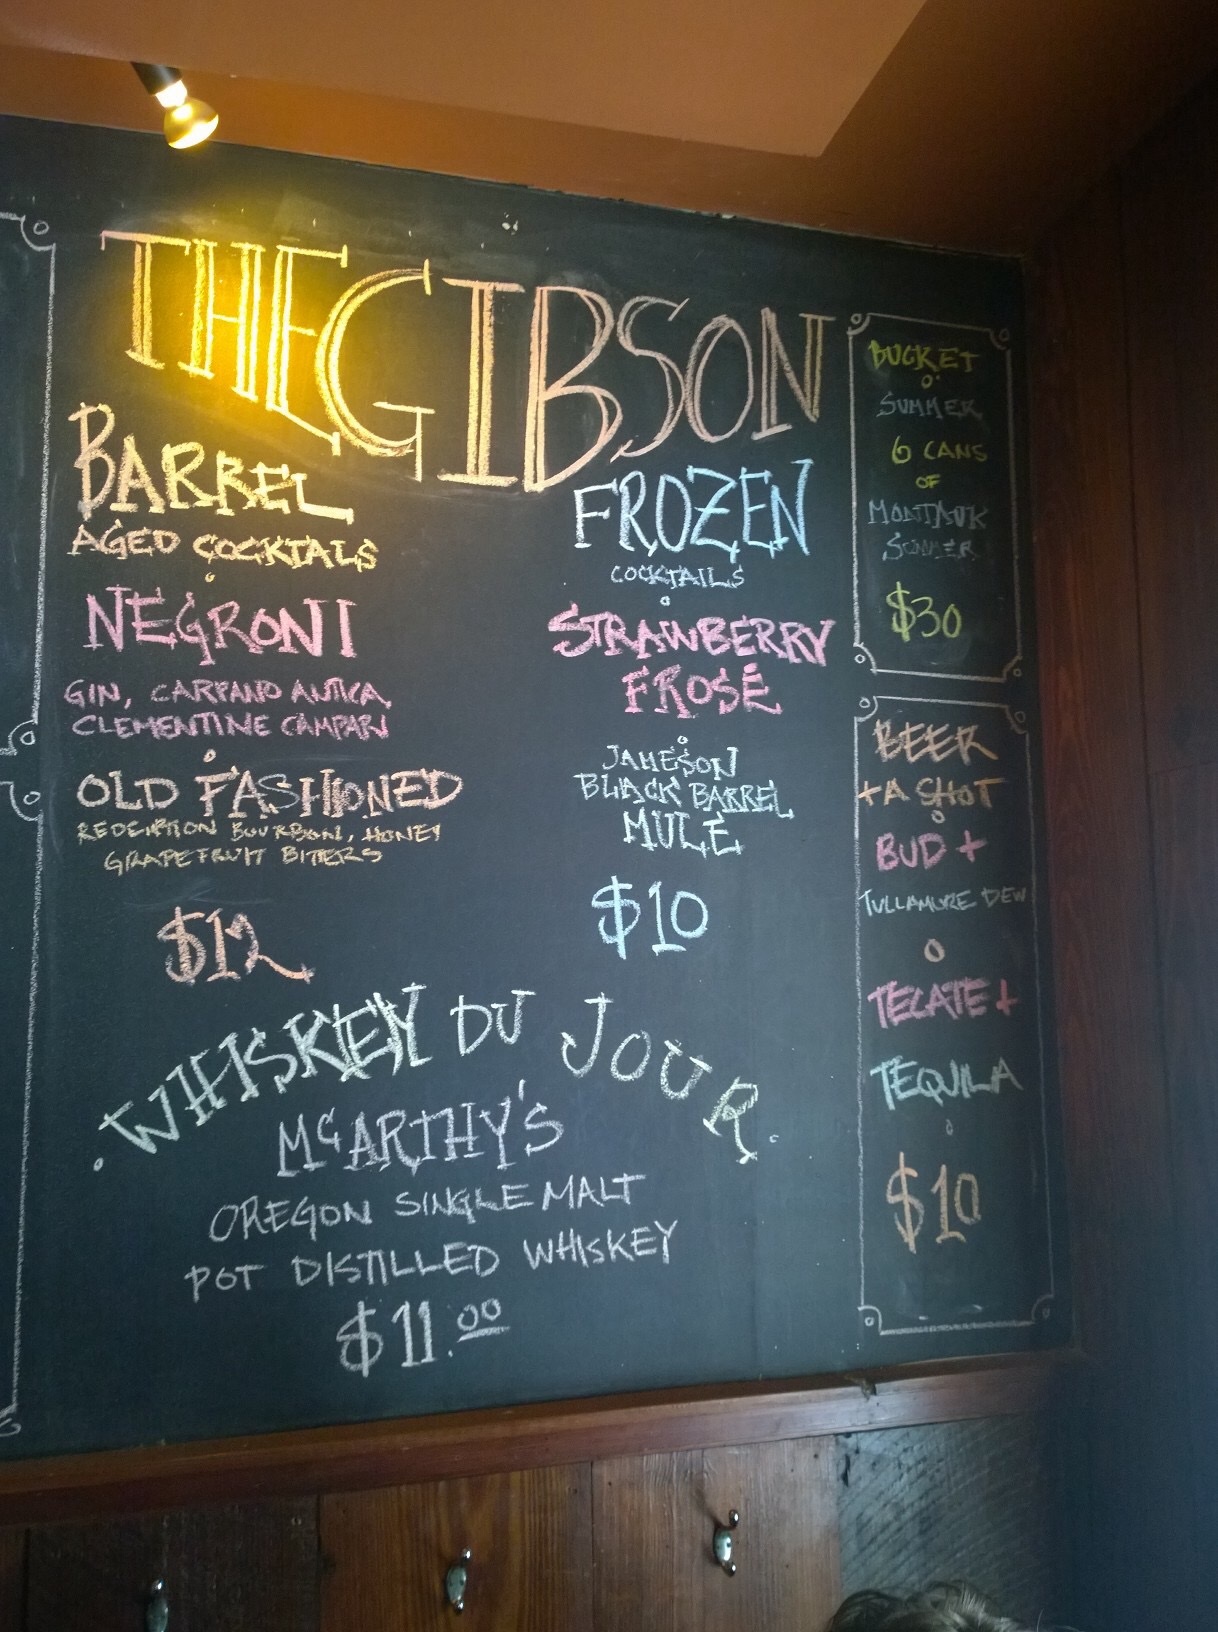 THE GIBSON
BARREL
AGED COCKTALS
NEGRONI
GIN, CARPANO ANTICA,
CLEMENTINE CAMPARI
OLD FASHIONED
REDEMPTION BOURBON, HONEY
GRAPEFRUIT BITTERS
$12
FROZEN
COCKTAILS
STRAWBERRY
FROSÉ
JAMESON
BLACK BARREL
MULE
$10
WHISKEY DU JOUR
McARTHY'S
OREGON SINGLE MALT
POT DISTILLED WHISKEY
$11.00
BUCKET
O'
SUMMER
6 CANS
OF
MONTAUK
SUMMER
$30
BEER
+A SHOT
BUD +
TULLAMORE DEW
TECATE +
TEQUILA
$10